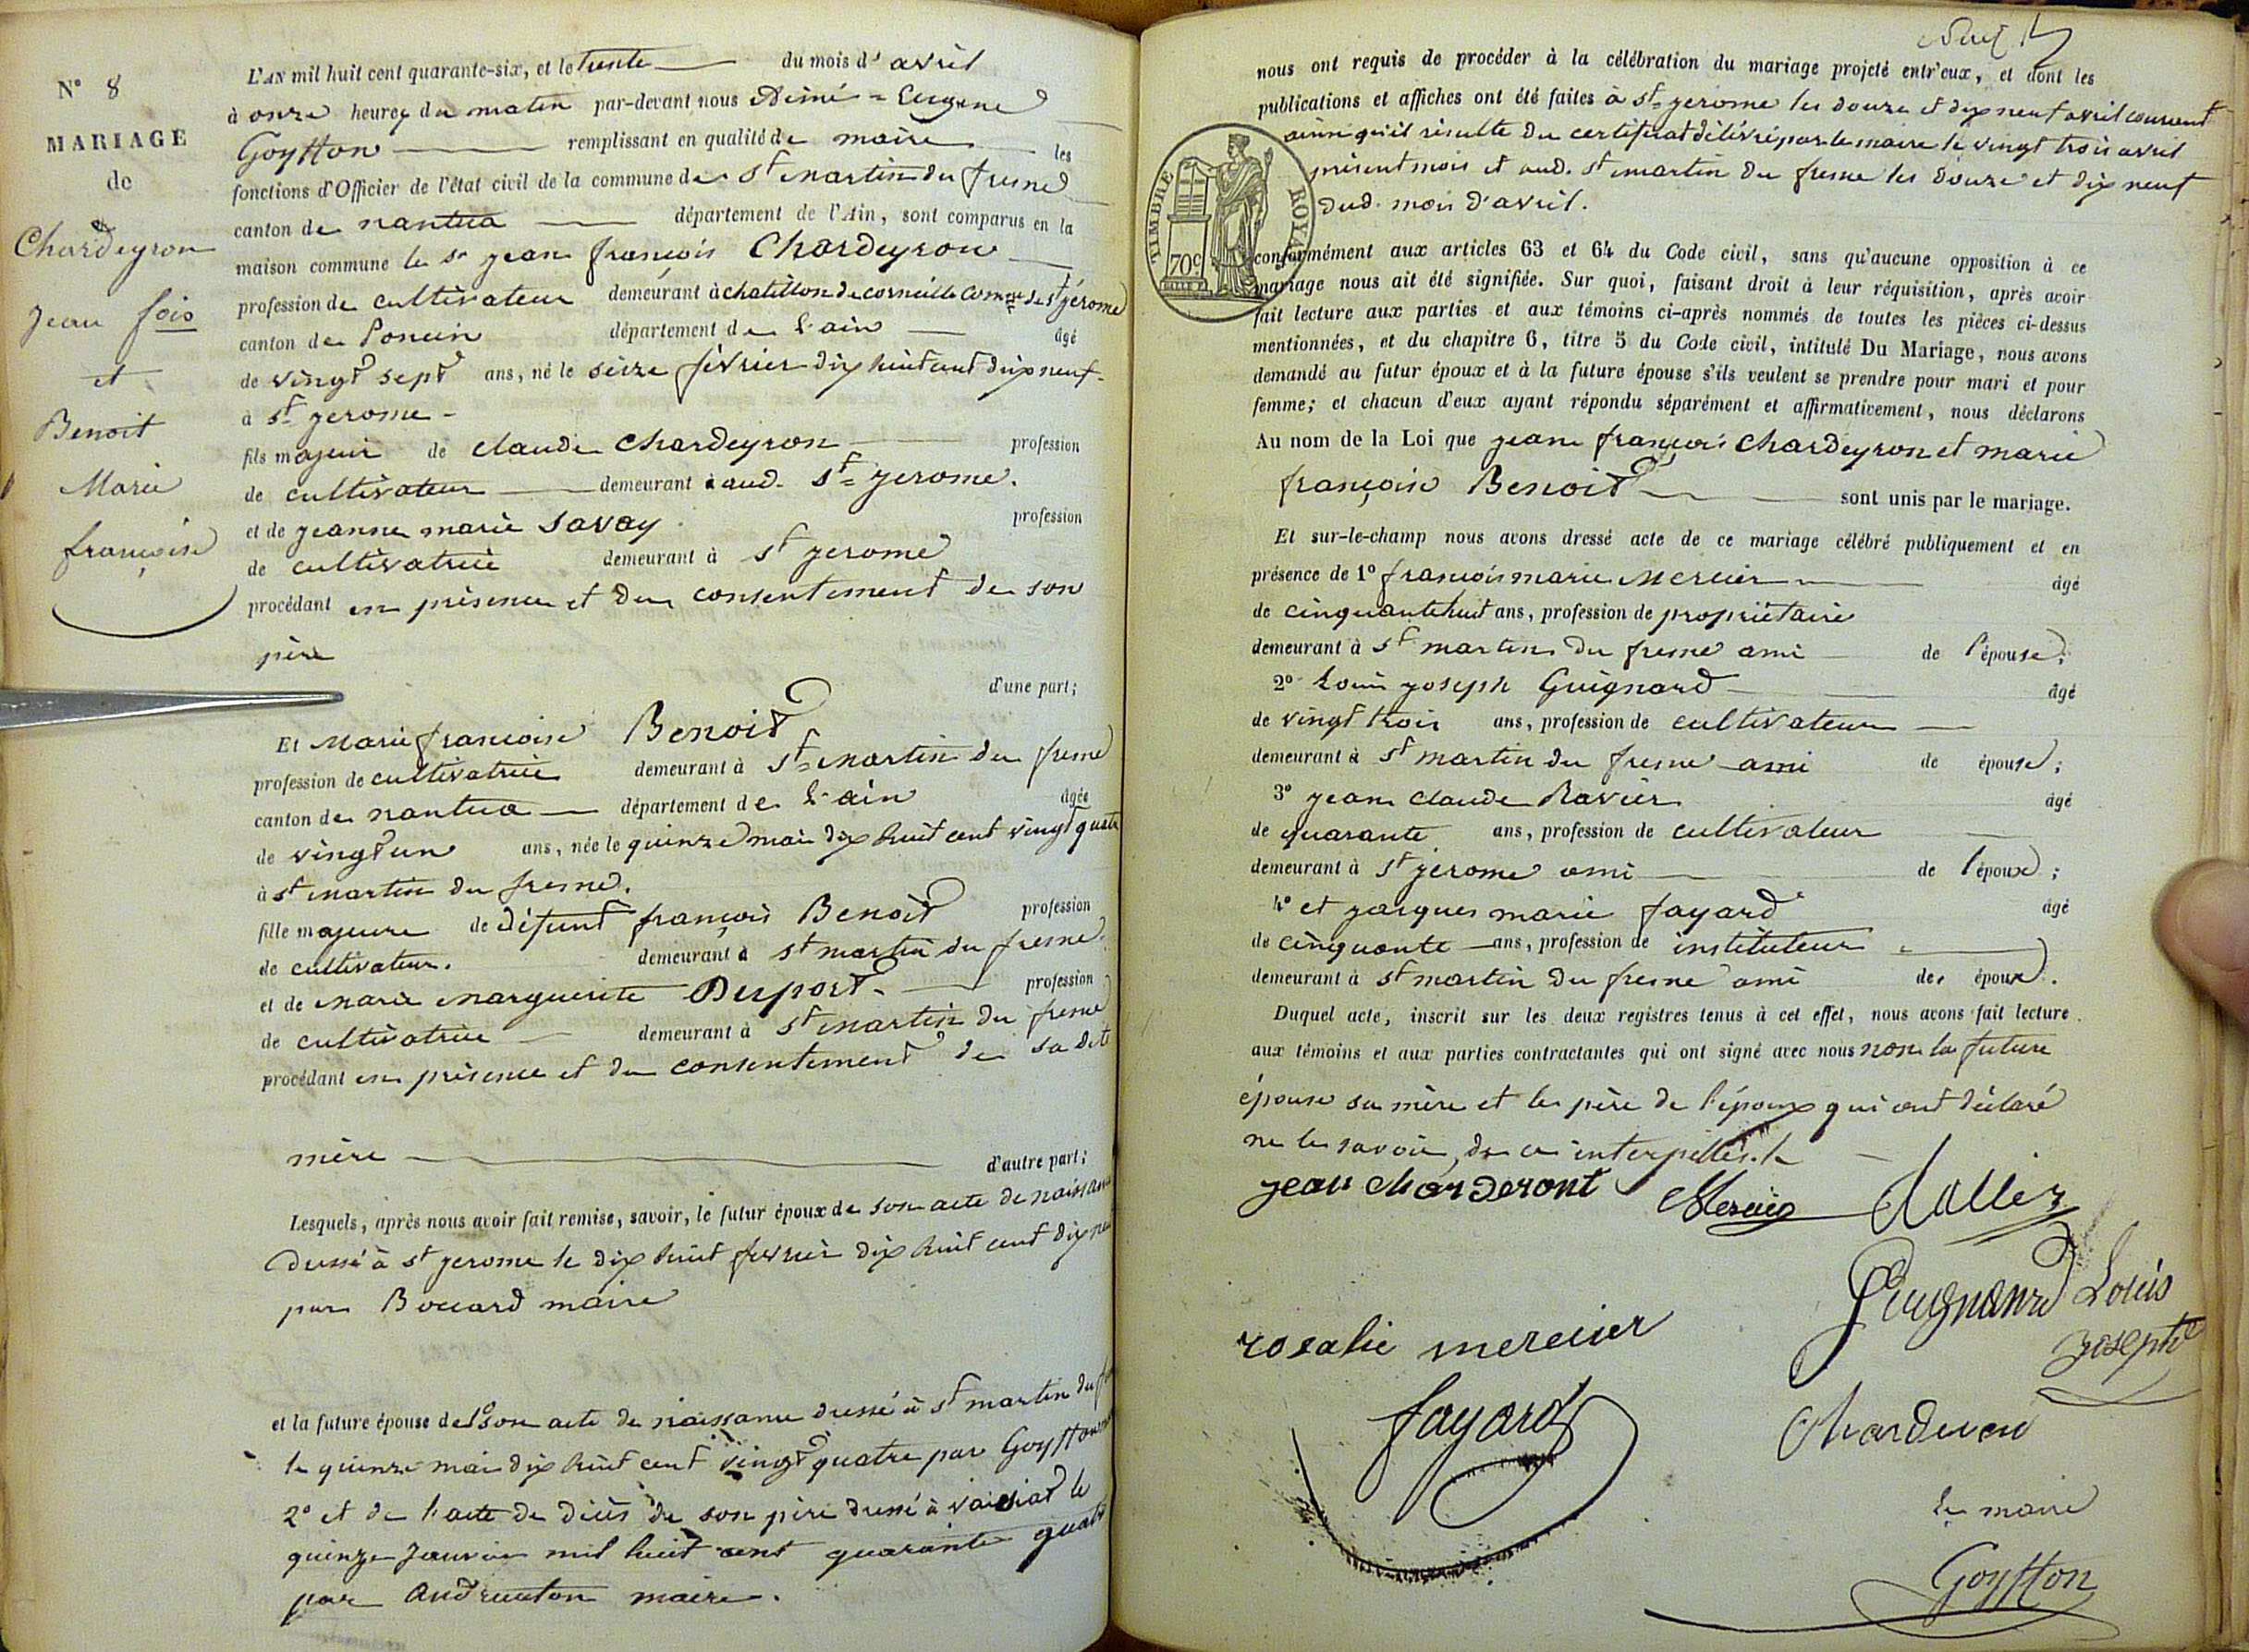 N° 8
MARIAGE
de
Chardeyron
Jean fois
et
Benoit
Marie
françoise
L'AN mil huit cent quarante-six, et le trente du mois d' avril
à onze heures du matin par-devant nous Aimé = Eugene
Goyffon remplissant en qualité de maire les
fonctions d'Officier de l'état civil de la commune de St martin du fresne
canton de nantua département de l'Ain, sont comparus en la
maison commune le sr jean françois Chardeyron
profession de cultivateur demeurant à chatillon de corneille Comne de st jérome
canton de Poncin département de l'ain âgé
de vingt sept ans, né le seize février dix huit cent dix neuf
à st jerome
fils majeur de claude chardeyron profession
de cultivateur demeurant à aud. st jerome.
et de jeanne marie Savay profession
de cultivatrice demeurant à st jerome
procédant en présence et du consentement de son
père
d'une part;
Et Marie françoise Benoit
profession de cultivatrice demeurant à st martin du fresne
canton de nantua département de l'ain âgée
de vingt un ans, née le quinze mai dix huit cent vingt quatre
à st martin du fresne.
fille majeure de défunt françois Benoit profession
de cultivateur. demeurant à st martin du fresne
et de marie marguerite Duport profession
de cultivatrice demeurant à st martin du fresne
procédant en présence et du consentement de sa dite
mère d'autre part;
Lesquels, après nous avoir fait remise, savoir, le futur époux de son acte de naissance
dressé à st jerome le dix huit fevrier dix huit cent dix neuf
par Boccard maire
et la future épouse de 1° son acte de naissance dressé à st martin du
le quinze mai dix huit cent vingt quatre par Goyffon
2° et de l'acte de décès de son père dressé à le
quinze janvier mil huit cent quarante quatre
par maire.
nous ont requis de procéder à la célébration du mariage projeté entr'eux, et dont les
publications et affiches ont été faites à st jerome les douze et dix neuf avril courant
ainsi qu'il résulte du certificat délivré par le maire le vingt trois avril
présent mois et aud. st martin du fresne les douze et dix neuf
dud. mois d'avril.
TIMBRE ROYAL
70c
conformément aux articles 63 et 64 du Code civil, sans qu'aucune opposition à ce
mariage nous ait été signifiée. Sur quoi, faisant droit à leur réquisition, après avoir
fait lecture aux parties et aux témoins ci-après nommés de toutes les pièces ci-dessus
mentionnées, et du chapitre 6, titre 5 du Code civil, intitulé Du Mariage, nous avons
demandé au futur époux et à la future épouse s'ils veulent se prendre pour mari et pour
femme; et chacun d'eux ayant répondu séparément et affirmativement, nous déclarons
Au nom de la Loi que jean françois Chardeyron et marie
françoise Benoit sont unis par le mariage.
Et sur-le-champ nous avons dressé acte de ce mariage célébré publiquement et en
présence de 1° françois marie Mercier âgé
de cinquante huit ans, profession de propriétaire
demeurant à st martin du fresne ami de l'épouse;
2° Louis joseph Guignard âgé
de vingt trois ans, profession de cultivateur
demeurant à st martin du fresne ami de épouse;
3° jean claude Ravier âgé
de quarante ans, profession de cultivateur
demeurant à st jerome ami de l'époux;
4° et jacques marie fayard âgé
de cinquante ans, profession de instituteur
demeurant à st martin du fresne ami de époux.
Duquel acte, inscrit sur les deux registres tenus à cet effet, nous avons fait lecture
aux témoins et aux parties contractantes qui ont signé avec nous non la future
épouse sa mère et le père de l'époux qui ont déclaré
ne le savoir, de ce interpellés.
jean charderont Mercier
Guignard Louis
joseph
rosalie mercier
fayard
le maire
Goyffon